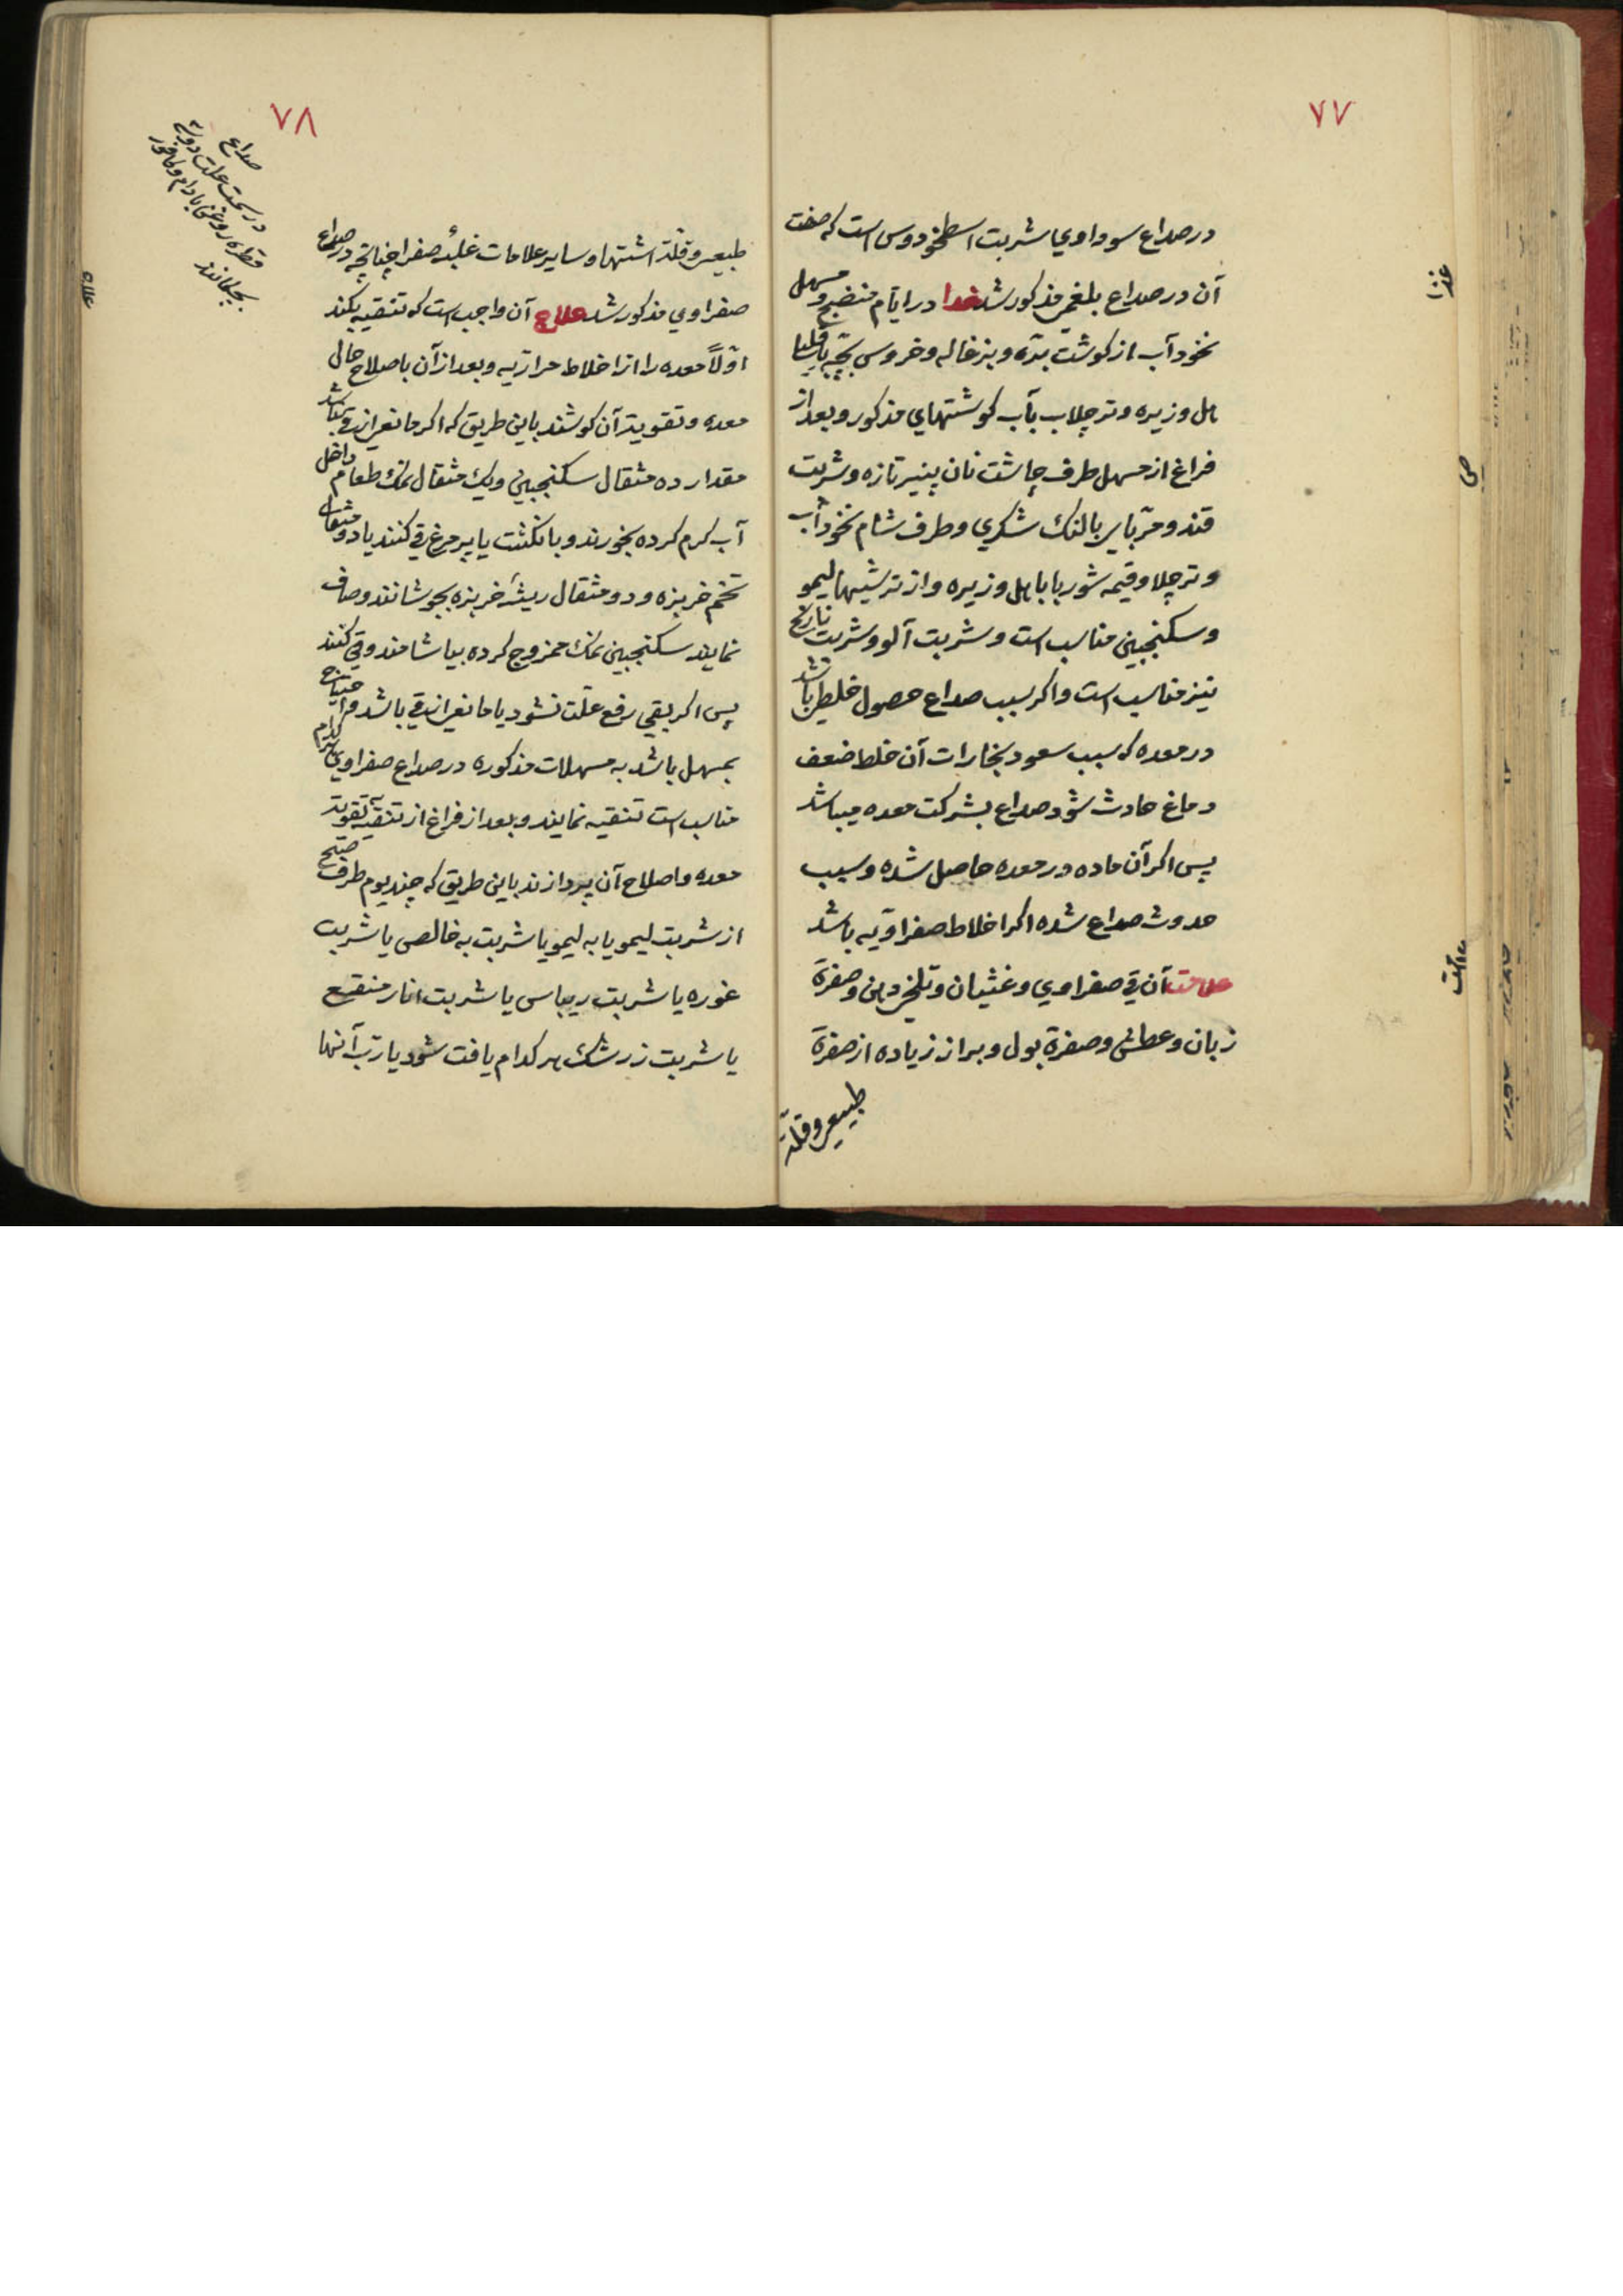 ۷۷
در صداع سوداوي شربت اسطخودوس است که صفت
آن در صداع بلغمی مذکور شد غذا در ایام منضج و مسهل
نخود آب از کوشت بره و بزغاله و خروس بچه با قلیا
هل و زیره و تر چلاب بآب کوشتهاي مذکور و بعد از
فراغ از مسهل طرف چاشت نان پنیر تازه و شربت
قند و مربای بالنك شکري و طرف شام نخود آب
و تر چلا و قیمه شوربا با هل و زیره و از ترشیها لیمو
و سکنجبین مناسب است و شربت آلو و شربت نارنج
نیز مناسب است و اکر سبب صداع حصول خلطی باشد
در معده که سبب سعود بخارات آن خلط ضعف
دماغ حادث شود صداع بشرکت معده میباشد
پس اکر آن ماده در معده حاصل شده و سبب
حدوث صداع شده اکر اخلاط صفراویه باشد
علامت آن قی صفراوي و غثیان و تلخی دهن و صفرة
زبان و عطش و صفرة بول و براز زیاده از صفرة
طبیعی و قلة
غذا
علامت
۷۸
طبیعی و قلة اشتها و سایر علامات غلبهٔ صفرا چنانچه در صداع
صفراوي مذکور شد علاج آن واجب است که تنقیه بکند
اولاً معده را از اخلاط مراریه و بعد از آن باصلاح حال
معده و تقویت آن کوشند باین طریق که اکر مانعی از قی نباشد
مقدار ده مثقال سکنجبین و یك مثقال نمك طعام داخل
آب کرم کرده بخورند و بانکشت یا پر مرغ قی کنند یا دو مثقال
تخم خربزه و دو مثقال ریشهٔ خربزه بجوشانند و صاف
نمایند سکنجبین نمك ممزوج کرده بیاشامند و قی کنند
پس اکر بقی رفع علت نشود یا مانعی از قی باشد و احتیاج
بمسهل باشد به مسهلات مذکوره در صداع صفراوي هر کدام
مناسب است تنقیه نمایند و بعد از فراغ از تنقیه بتقویت
معده و اصلاح آن پردازند باین طریق که چند یوم طرف صبح
از شربت لیمو یا به لیمو یا شربت به خالصی یا شربت
غوره یا شربت ریباس یا شربت انار منقع
یا شربت زرشك هر کدام یافت شود یا رب آنها
صداع
قطره روغن بادام و کافور
بچکانند
علاج